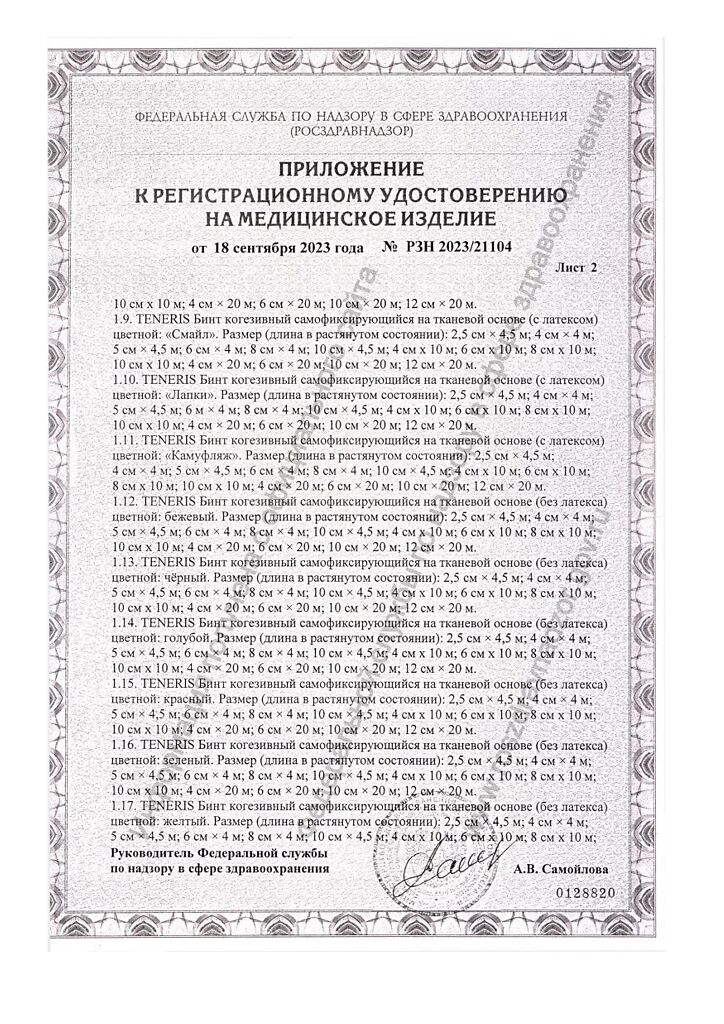 ФЕДЕРАЛЬНАЯ СЛУЖБА ПО НАДЗОРУ В СФЕРЕ ЗДРАВООХРАНЕНИЯ
(РОСЗДРАВНАДЗОР)
ПРИЛОЖЕНИЕ
К РЕГИСТРАЦИОННОМУ УДОСТОВЕРЕНИЮ
НА МЕДИЦИНСКОЕ ИЗДЕЛИЕ
от 18 сентября 2023 года № РЗН 2023/21104
Лист 2
10 см х 10 м; 4 см × 20 м; 6 см × 20 м; 10 см × 20 м; 12 см × 20 м.
1.9. TENERIS Бинт когезивный самофиксирующийся на тканевой основе (с латексом)
цветной: «Смайл». Размер (длина в растянутом состоянии): 2,5 см × 4,5 м; 4 см × 4 м;
5 см × 4,5 м; 6 см × 4 м; 8 см × 4 м; 10 см × 4,5 м; 4 см х 10 м; 6 см х 10 м; 8 см х 10 м;
10 см х 10 м; 4 см × 20 м; 6 см × 20 м; 10 см × 20 м; 12 см × 20 м.
1.10. TENERIS Бинт когезивный самофиксирующийся на тканевой основе (с латексом)
цветной: «Лапки». Размер (длина в растянутом состоянии): 2,5 см × 4,5 м; 4 см × 4 м;
5 см × 4,5 м; 6 м × 4 м; 8 см × 4 м; 10 см × 4,5 м; 4 см х 10 м; 6 см х 10 м; 8 см х 10 м;
10 см х 10 м; 4 см × 20 м; 6 см × 20 м; 10 см × 20 м; 12 см × 20 м.
1.11. TENERIS Бинт когезивный самофиксирующийся на тканевой основе (с латексом)
цветной: «Камуфляж». Размер (длина в растянутом состоянии): 2,5 см × 4,5 м;
4 см × 4 м; 5 см × 4,5 м; 6 см × 4 м; 8 см × 4 м; 10 см × 4,5 м; 4 см х 10 м; 6 см х 10 м;
8 см х 10 м; 10 см х 10 м; 4 см × 20 м; 6 см × 20 м; 10 см × 20 м; 12 см × 20 м.
1.12. TENERIS Бинт когезивный самофиксирующийся на тканевой основе (без латекса)
цветной: бежевый. Размер (длина в растянутом состоянии): 2,5 см × 4,5 м; 4 см × 4 м;
5 см × 4,5 м; 6 см × 4 м; 8 см × 4 м; 10 см × 4,5 м; 4 см х 10 м; 6 см х 10 м; 8 см х 10 м;
10 см х 10 м; 4 см × 20 м; 6 см × 20 м; 10 см × 20 м; 12 см × 20 м.
1.13. TENERIS Бинт когезивный самофиксирующийся на тканевой основе (без латекса)
цветной: чёрный. Размер (длина в растянутом состоянии): 2,5 см × 4,5 м; 4 см × 4 м;
5 см × 4,5 м; 6 см × 4 м; 8 см × 4 м; 10 см × 4,5 м; 4 см х 10 м; 6 см х 10 м; 8 см х 10 м;
10 см х 10 м; 4 см × 20 м; 6 см × 20 м; 10 см × 20 м; 12 см × 20 м.
1.14. TENERIS Бинт когезивный самофиксирующийся на тканевой основе (без латекса)
цветной: голубой. Размер (длина в растянутом состоянии): 2,5 см × 4,5 м; 4 см × 4 м;
5 см × 4,5 м; 6 см × 4 м; 8 см × 4 м; 10 см × 4,5 м; 4 см х 10 м; 6 см х 10 м; 8 см х 10 м;
10 см х 10 м; 4 см × 20 м; 6 см × 20 м; 10 см × 20 м; 12 см × 20 м.
1.15. TENERIS Бинт когезивный самофиксирующийся на тканевой основе (без латекса)
цветной: красный. Размер (длина в растянутом состоянии): 2,5 см × 4,5 м; 4 см × 4 м;
5 см × 4,5 м; 6 см × 4 м; 8 см × 4 м; 10 см × 4,5 м; 4 см х 10 м; 6 см х 10 м; 8 см х 10 м;
10 см х 10 м; 4 см × 20 м; 6 см × 20 м; 10 см × 20 м; 12 см × 20 м.
1.16. TENERIS Бинт когезивный самофиксирующийся на тканевой основе (без латекса)
цветной: зеленый. Размер (длина в растянутом состоянии): 2,5 см × 4,5 м; 4 см × 4 м;
5 см × 4,5 м; 6 см × 4 м; 8 см × 4 м; 10 см × 4,5 м; 4 см х 10 м; 6 см х 10 м; 8 см х 10 м;
10 см х 10 м; 4 см × 20 м; 6 см × 20 м; 10 см × 20 м; 12 см × 20 м.
1.17. TENERIS Бинт когезивный самофиксирующийся на тканевой основе (без латекса)
цветной: желтый. Размер (длина в растянутом состоянии): 2,5 см × 4,5 м; 4 см × 4 м;
5 см × 4,5 м; 6 см × 4 м; 8 см × 4 м; 10 см × 4,5 м; 4 см х 10 м; 6 см х 10 м; 8 см х 10 м;
Руководитель Федеральной службы
по надзору в сфере здравоохранения
А.В. Самойлова
0128820